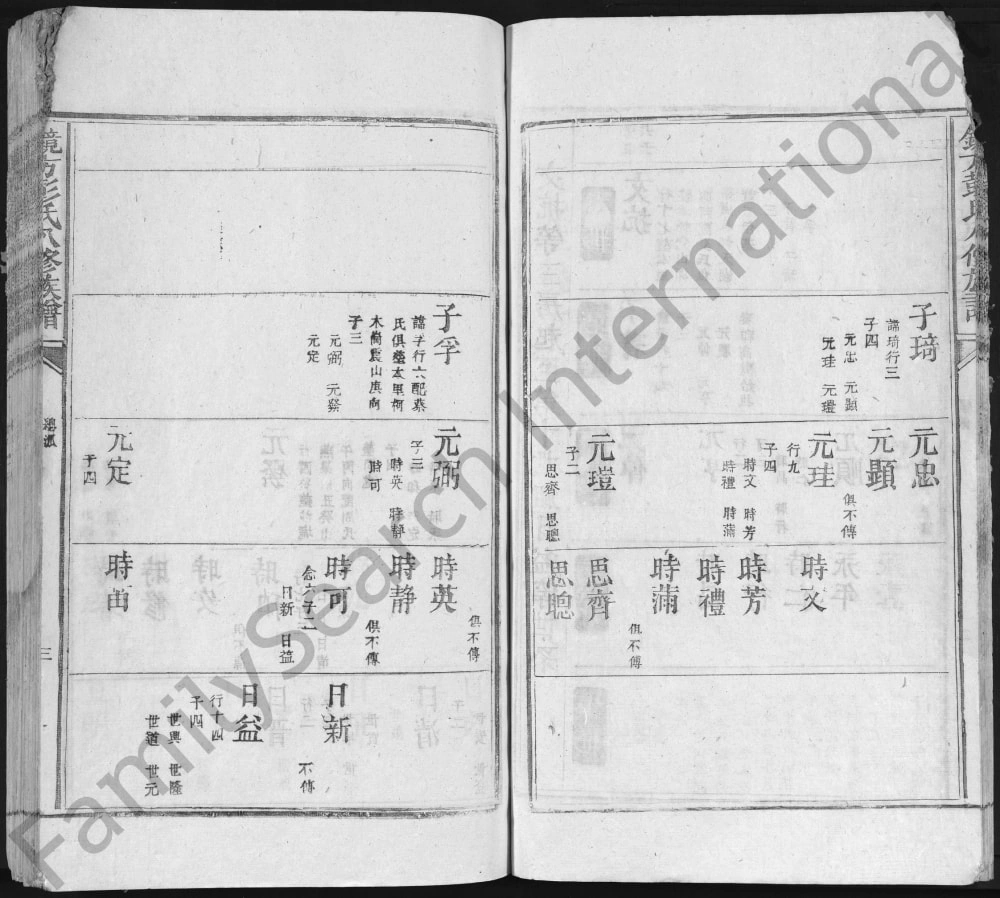 子琦
諱琦行三
子四
元忠 元顯
元珪 元璒
元忠
元顯
俱不傳
元珪
行九
子四
時文 時芳
時禮 時蒲
元璒
子二
思齊 思聰
時文
時芳
時禮
時蒲
俱不傳
思齊
思聰
鏡方彭氏八修族譜
子孚
諱孚行六配蔡
氏俱塟太里柯
木崗震山庚向
子三
元弼 元發
元定
元弼
子三
時英 時靜
時可
元定
子四
時英
俱不傳
時静
俱不傳
時可
念六子二
日新 日益
時苗
日新
不傳
日益
行十四
子四
世興 世隆
世道 世元
總派
三
FamilySearch International